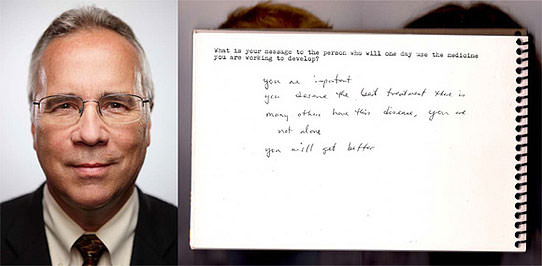 What is your message to the person who will one day use the medicine
you are working to develop?
you are important
you deserve the best treatment there is
many others have this disease, you are
not alone
you will get better